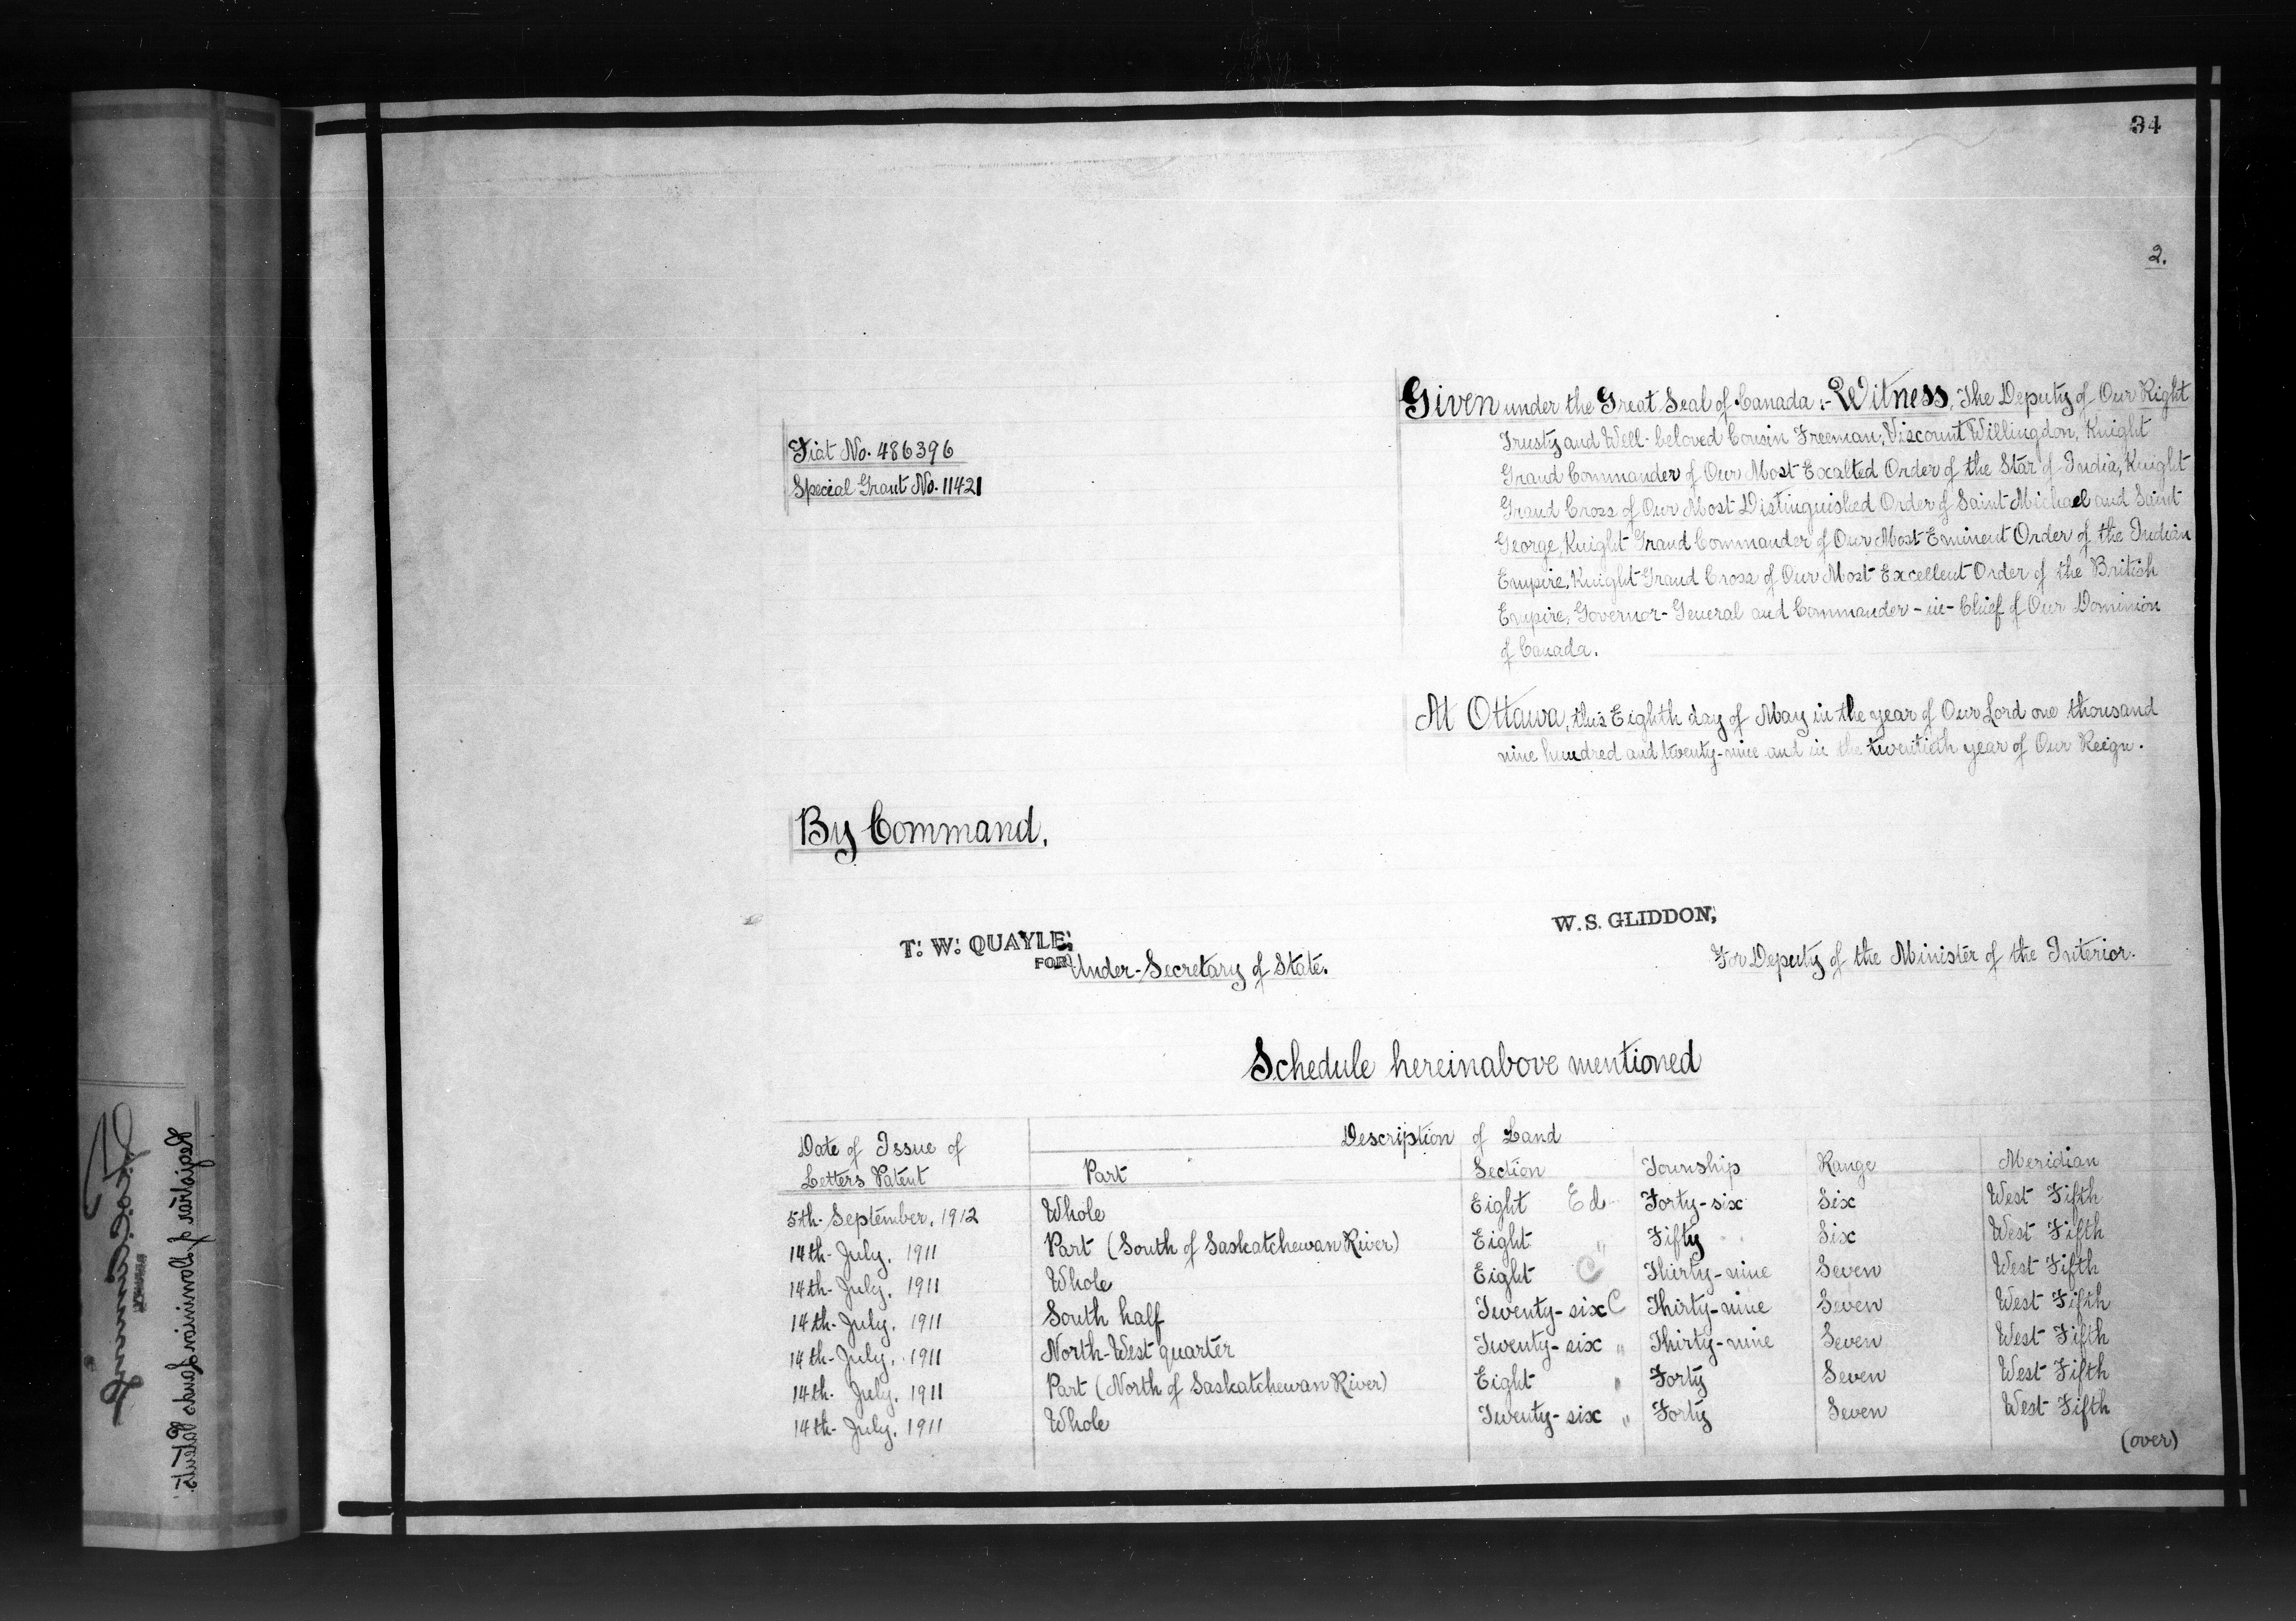 34
2.
Given under the Great Seal of Canada:- Witness, The Deputy of Our Right
Trusty and Well-beloved Cousin Freeman, Viscount Willingdon, Knight
Grand Commander of Our Most Exalted Order of the Star of India, Knight
Grand Cross of Our Most Distinguished Order of Saint Michael and Saint
George, Knight Grand Commander of Our Most Eminent Order of the Indian
Empire, Knight Grand Cross of Our Most Excellent Order of the British
Empire, Governor-General and Commander-in-Chief of Our Dominion
of Canada.
Fiat No. 486396
Special Grant No. 11421
At Ottawa, this Eighth day of May in the year of Our Lord one thousand
nine hundred and twenty-nine and in the twentieth year of Our Reign.
By Command,
T. W. QUAYLE,
FOR Under-Secretary of State.
W. S. GLIDDON,
For Deputy of the Minister of the Interior.
Schedule hereinabove mentioned
Date of Issue of Letters Patent Description of Land
Part Section Township Range Meridian
5th September, 1912 Whole Eight Ed Forty-six Six West Fifth
14th July, 1911 Part (South of Saskatchewan River) Eight " Fifty Six West Fifth
14th July, 1911 Whole Eight C Thirty-nine Seven West Fifth
14th July, 1911 South half Twenty-six C Thirty-nine Seven West Fifth
14th July, 1911 North-West quarter Twenty-six " Thirty-nine Seven West Fifth
14th July, 1911 Part (North of Saskatchewan River) Eight " Forty Seven West Fifth
14th July, 1911 Whole Twenty-six " Forty Seven West Fifth
(over)
Registrar of Dominion Lands Patents.